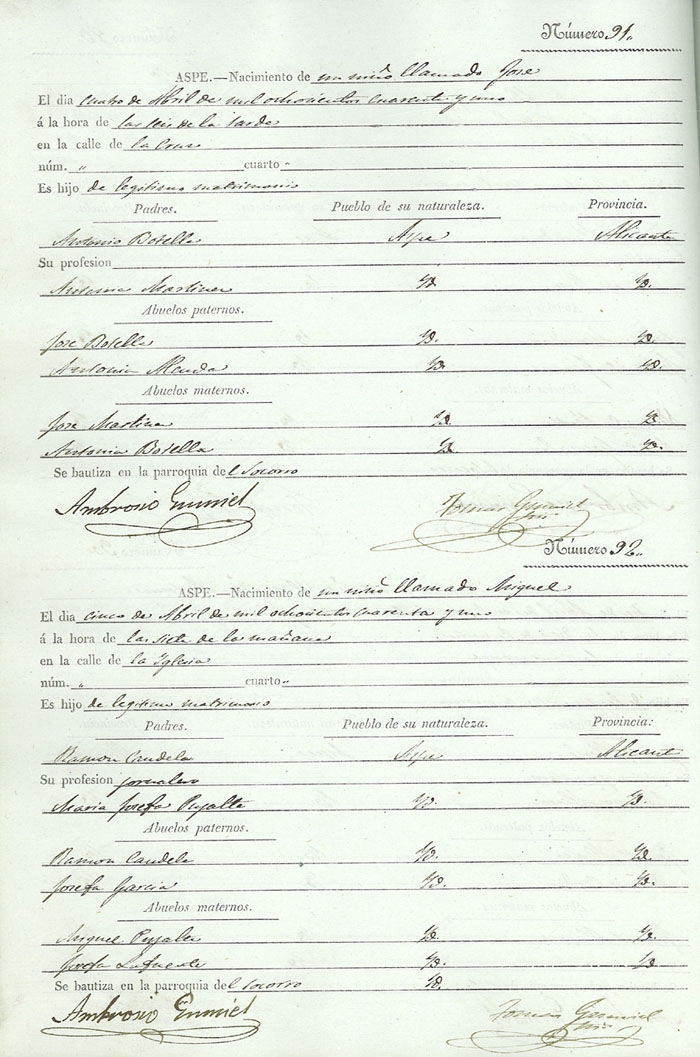 Número 91..
ASPE.—Nacimiento de un niño llamado Jose
El dia cuatro de Abril de mil ochocientos cuarenta y uno
á la hora de las seis de la tarde
en la calle de la Cruz
núm. " cuarto "
Es hijo de legitimo matrimonio
Padres. Pueblo de su naturaleza. Provincia.
Antonio Botella Aspe Alicante
Su profesion
Antonia Martinez Yd. Yd.
Abuelos paternos.
Jose Botella Yd. Yd.
Antonia Yd. Yd.
Abuelos maternos.
Jose Martinez Yd. Yd.
Antonia Botella Yd. Yd.
Se bautiza en la parroquia del Socorro
Ambrosio Gumiel Tomas Gumiel
Número 92..
ASPE.—Nacimiento de un niño llamado Miguel
El dia cinco de Abril de mil ochocientos cuarenta y uno
á la hora de las siete de la mañana
en la calle de la Iglesia
núm. " cuarto "
Es hijo de legitimo matrimonio
Padres. Pueblo de su naturaleza. Provincia:
Ramon Candela Aspe Alicante
Su profesion jornalero
Maria Josefa Pujalte Yd. Yd.
Abuelos paternos.
Ramon Candela Yd. Yd.
Josefa Garcia Yd. Yd.
Abuelos maternos.
Miguel Pujalte Yd. Yd.
Josefa Yd. Yd.
Se bautiza en la parroquia del Socorro Yd.
Ambrosio Gumiel Tomas Gumiel